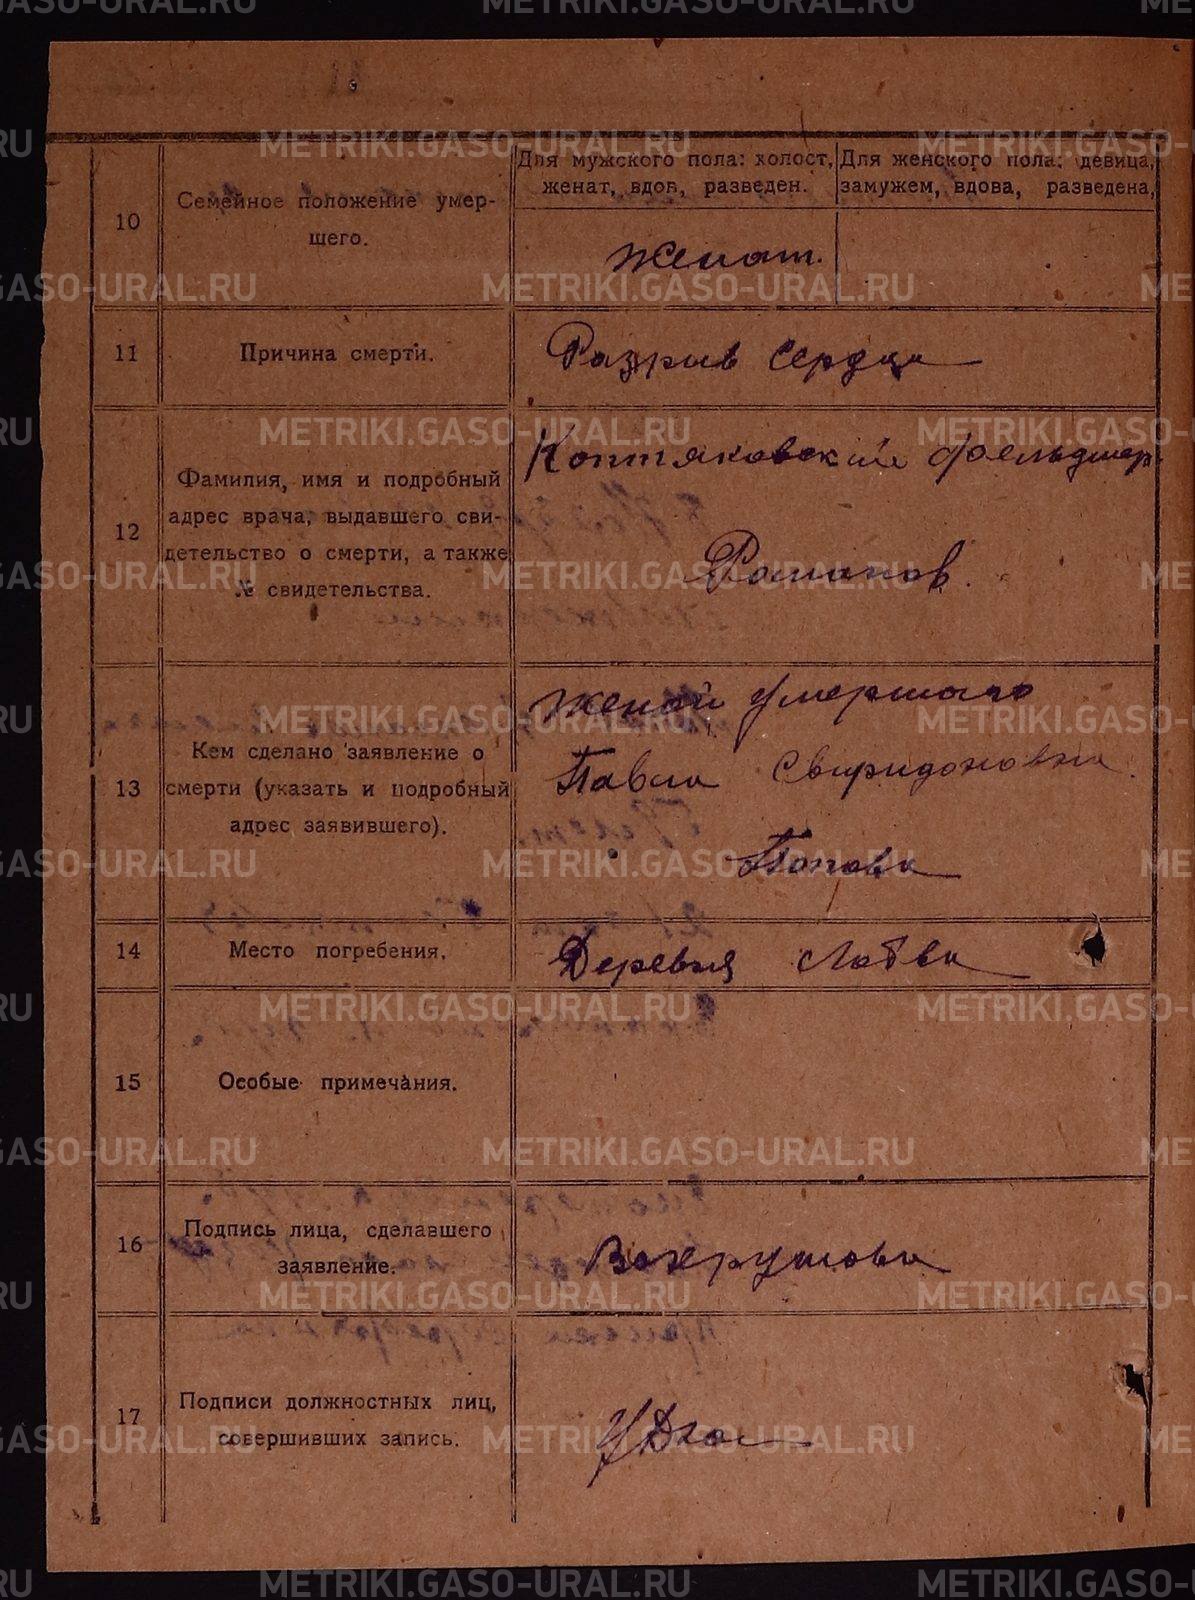 10
Семейное положение умер-
шего.
Для мужского пола: холост,
женат, вдов, разведен.
Для женского пола: девица,
замужем, вдова, разведена,
женат.
11
Причина смерти.
Разрыв сердца
12
Фамилия, имя и подробный
адрес врача, выдавшего сви-
детельство о смерти, а также
№ свидетельства.
Коптяковский фельдшер
Романов.
13
Кем сделано заявление о
смерти (указать и подробный
адрес заявившего).
Женой умершаго
Павла Свиридоновна
Попова
14
Место погребения.
Деревня
15
Особые примечания.
16
Подпись лица, сделавшего
заявление.
Вахрушева
17
Подписи должностных лиц,
совершивших запись.
METRIKI.GASO-URAL.RU